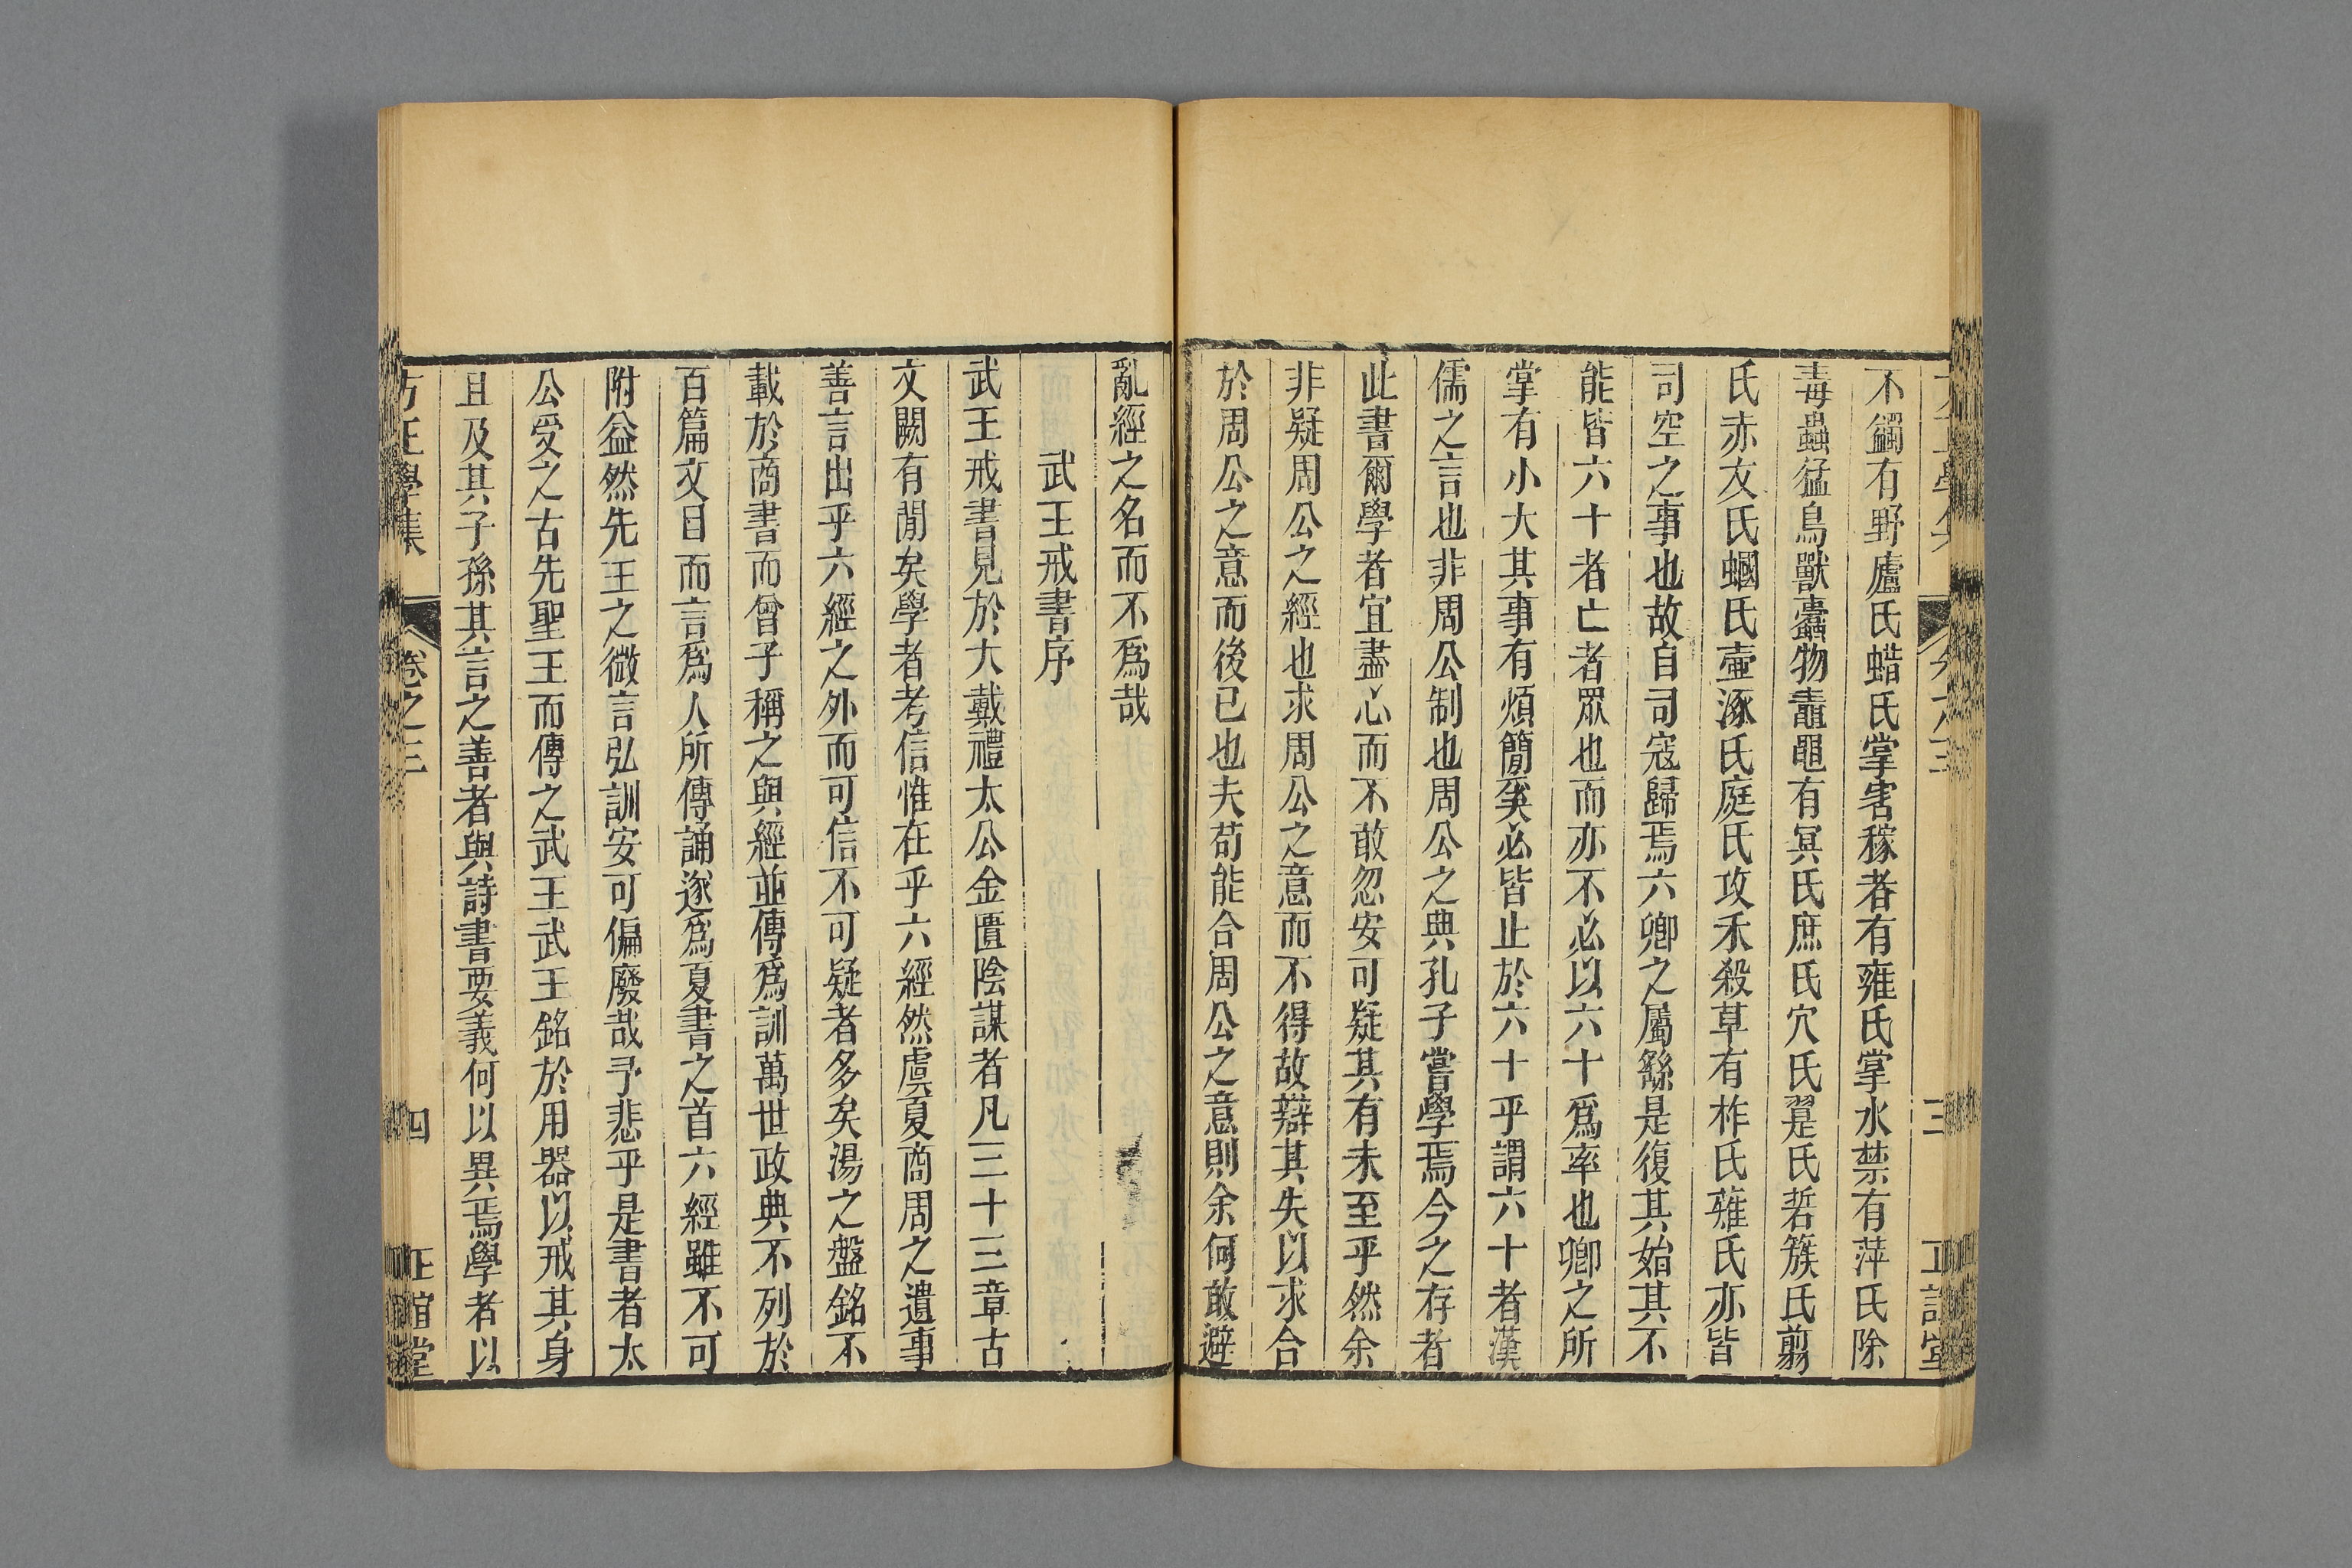 不蠲有野廬氏蜡氏掌害稼者有雍氏掌水禁有萍氏除
毒蟲猛鳥獸蠹物鼃黽有冥氏庶氏穴氏翨氏硩簇氏翦
氏赤犮氏蟈氏壷涿氏庭氏攻禾殺草有柞氏薙氏亦皆
司空之事也故自司寇歸焉六卿之屬繇是復其始其不
能皆六十者亡者眾也而亦不必以六十爲率也卿之所
掌有小大其事有煩簡奚必皆止於六十乎謂六十者漢
儒之言也非周公制也周公之典孔子嘗學焉今之存者
此書爾學者宜盡心而不敢忽安可疑其有未至乎然余
非疑周公之經也求周公之意而不得故辯其失以求合
於周公之意而後已也夫苟能合周公之意則余何敢避
亂經之名而不爲哉
武王戒書序
武王戒書見於大戴禮太公金匱陰謀者凡三十三章古
文闕有閒矣學者考信惟在乎六經然虞夏商周之遺事
善言出乎六經之外而可信不可疑者多矣湯之盤銘不
載於商書而曾子稱之與經並傳爲訓萬世政典不列於
百篇文目而言爲人所傳誦遂爲夏書之首六經雖不可
附益然先王之微言弘訓安可偏廢哉予悲乎是書者太
公受之古先聖王而傳之武王武王銘於用器以戒其身
且及其子孫其言之善者與詩書要義何以異焉學者以
方正學集 卷之三 四 正誼堂